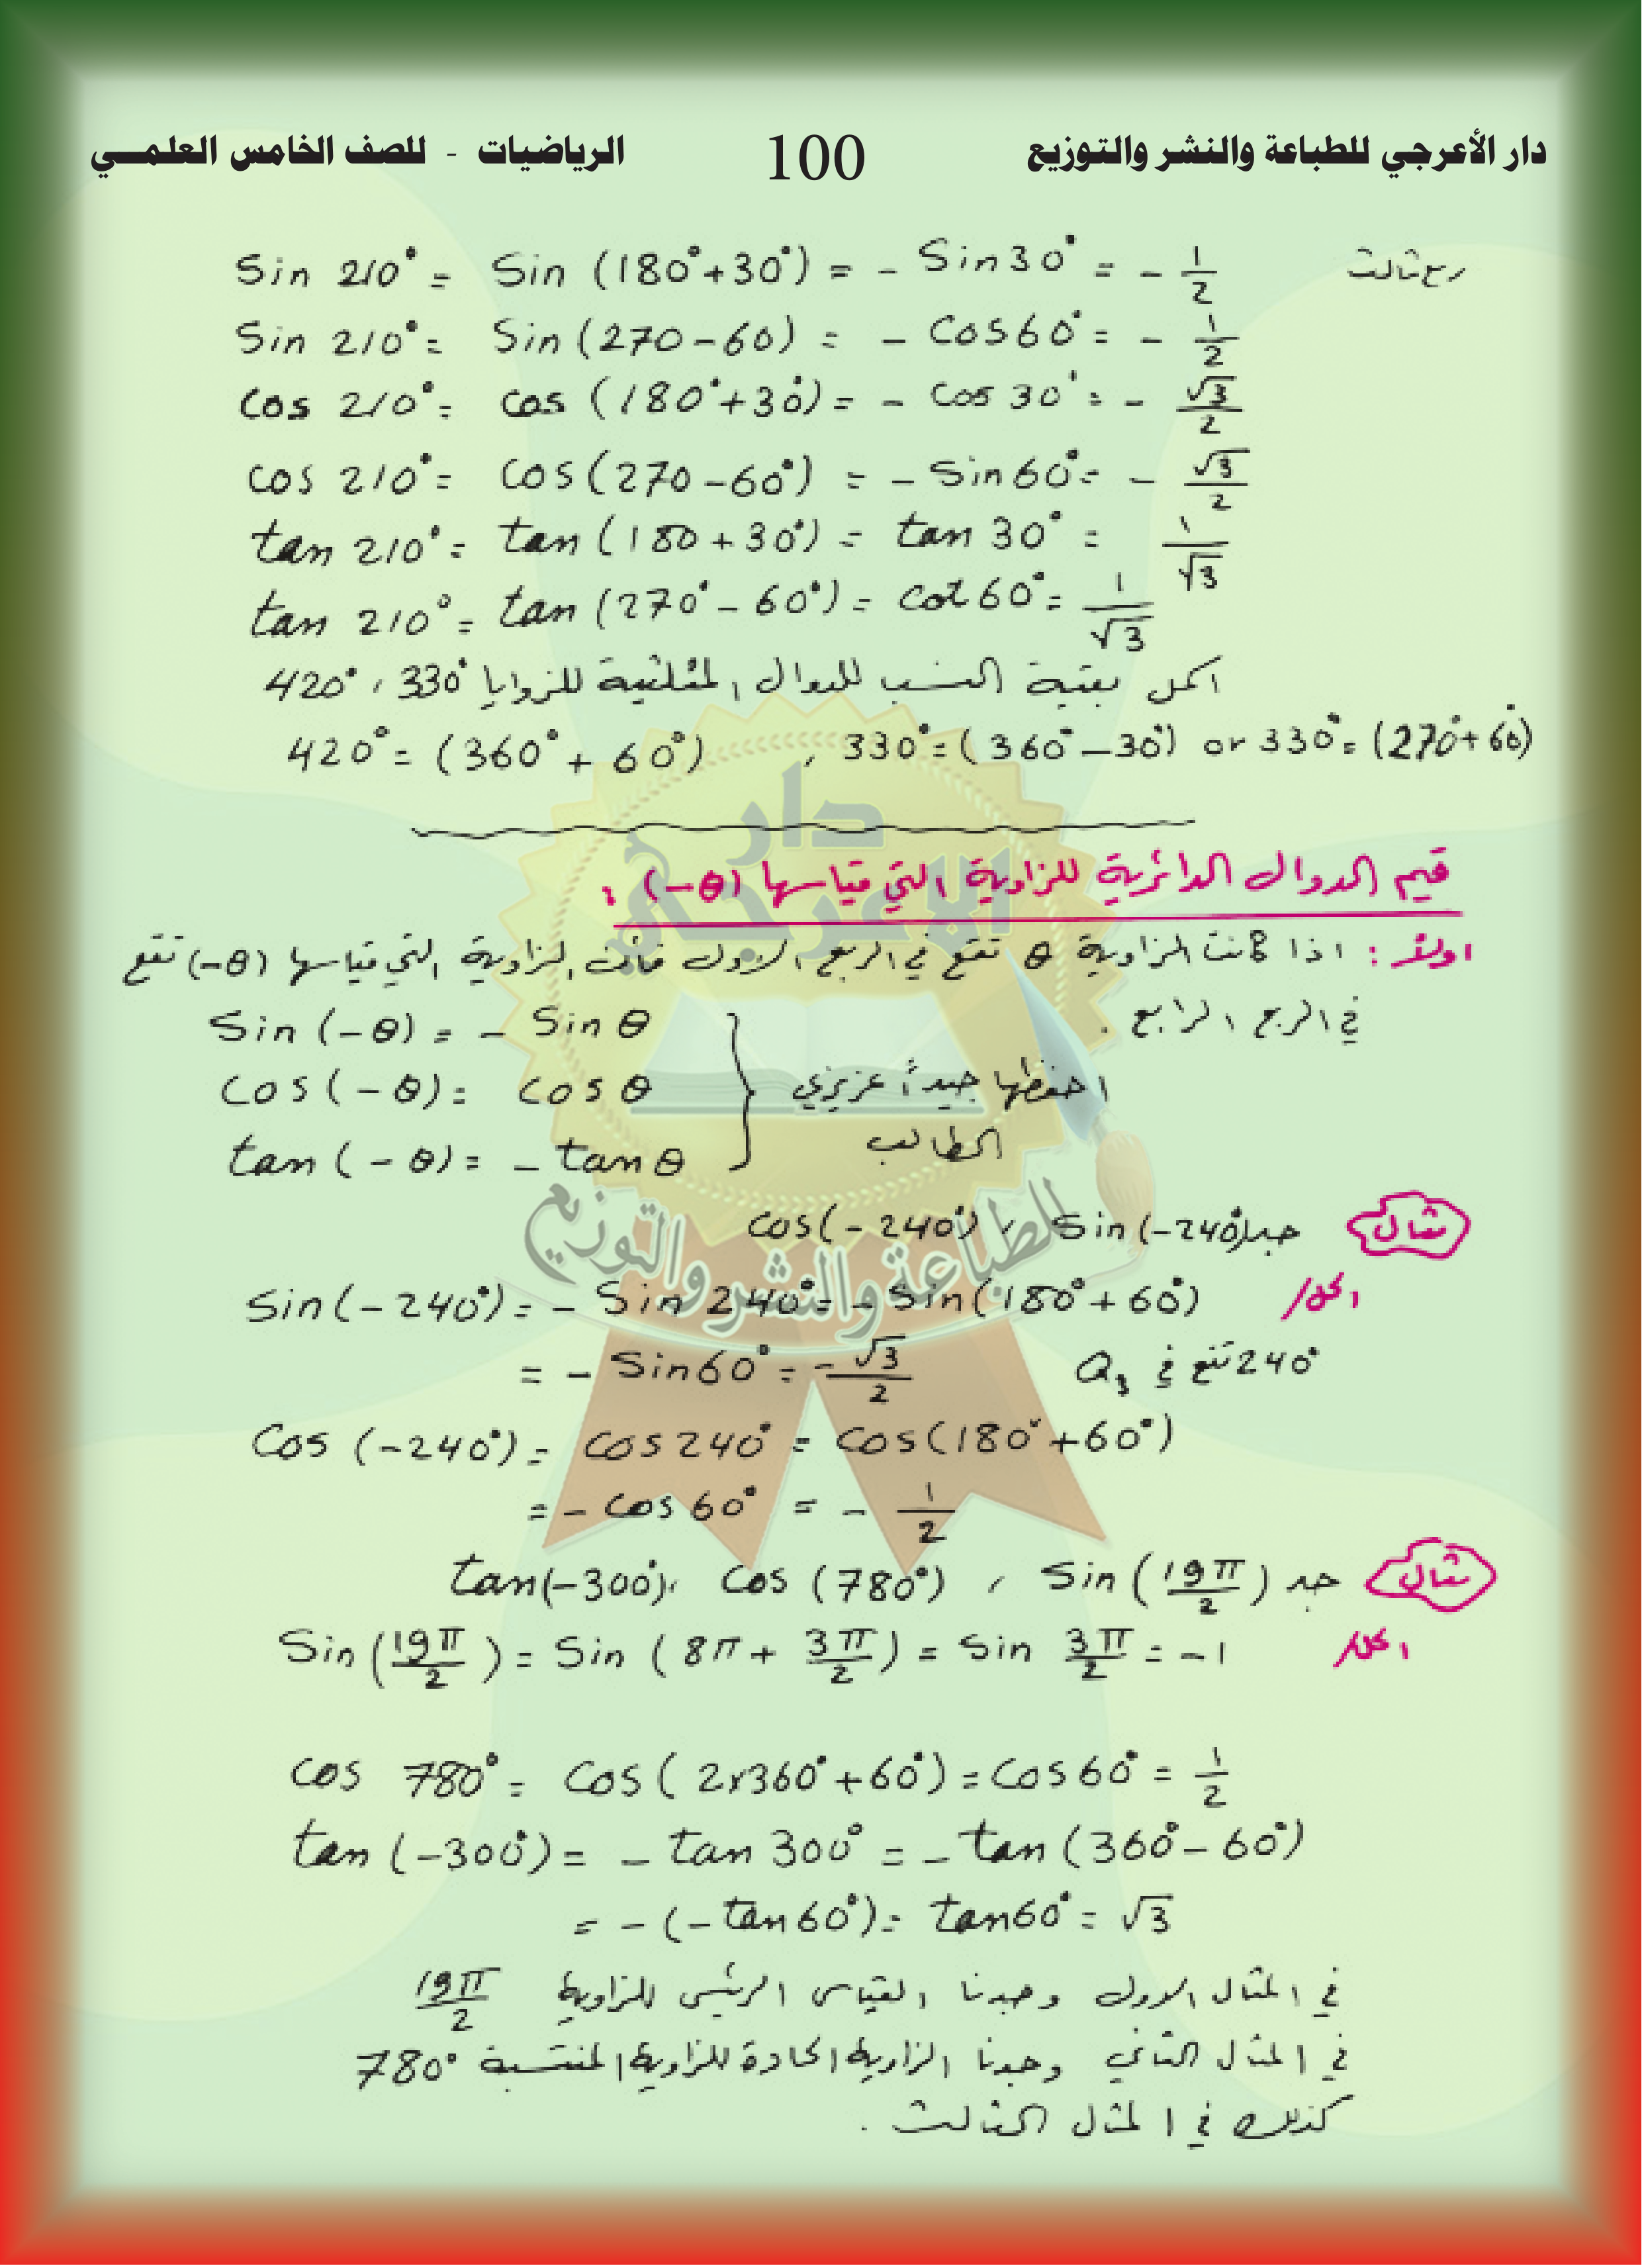 دار الأعرجي للطباعة والنشر والتوزيع 100 الرياضيات - للصف الخامس العلمي
Sin 210° = Sin (180° + 30°) = - Sin 30° = - 1/2 ربع ثالث
Sin 210° = Sin (270 - 60) = - Cos 60° = - 1/2
Cos 210° = Cos (180° + 30°) = - Cos 30° = - √3/2
Cos 210° = Cos (270 - 60°) = - Sin 60° = - √3/2
tan 210° = tan (180 + 30°) = tan 30° = 1/√3
tan 210° = tan (270° - 60°) = cot 60° = 1/√3
اكمل بقية النسب للدوال المثلثية للزوايا 330° ، 420°
420° = (360° + 60°) , 330° = (360° - 30°) or 330° = (270° + 60°)
قيم الدوال الدائرية للزاوية التي قياسها (-θ) :
اولاً : اذا كانت الزاوية θ تقع في الربع الاول فأن الزاوية التي قياسها (-θ) تقع
في الربع الرابع .
Sin (-θ) = - Sin θ
Cos (-θ) = Cos θ
tan (-θ) = - tan θ
احفظها جيداً عزيزي
الطالب
مثال جد Sin (-240°) ، Cos (-240°)
الحل/ Sin (-240°) = - Sin 240° = - Sin (180° + 60°)
= - Sin 60° = - √3/2 240° تقع في Q3
Cos (-240°) = Cos 240° = Cos (180° + 60°)
= - Cos 60° = - 1/2
مثال جد Sin (19π/2) ، Cos (780°) ، tan (-300°)
الحل/ Sin (19π/2) = Sin (8π + 3π/2) = Sin 3π/2 = -1
Cos 780° = Cos (2x360° + 60°) = Cos 60° = 1/2
tan (-300°) = - tan 300° = - tan (360° - 60°)
= - (- tan 60°) = tan 60° = √3
في المثال الاول وجدنا القياس الرئيسي للزاوية 19π/2
في المثال الثاني وجدنا الزاوية الحادة للزاوية المنتسبة 780°
كذلك في المثال الثالث .
دار
الاعرجي
للطباعة والنشر والتوزيع